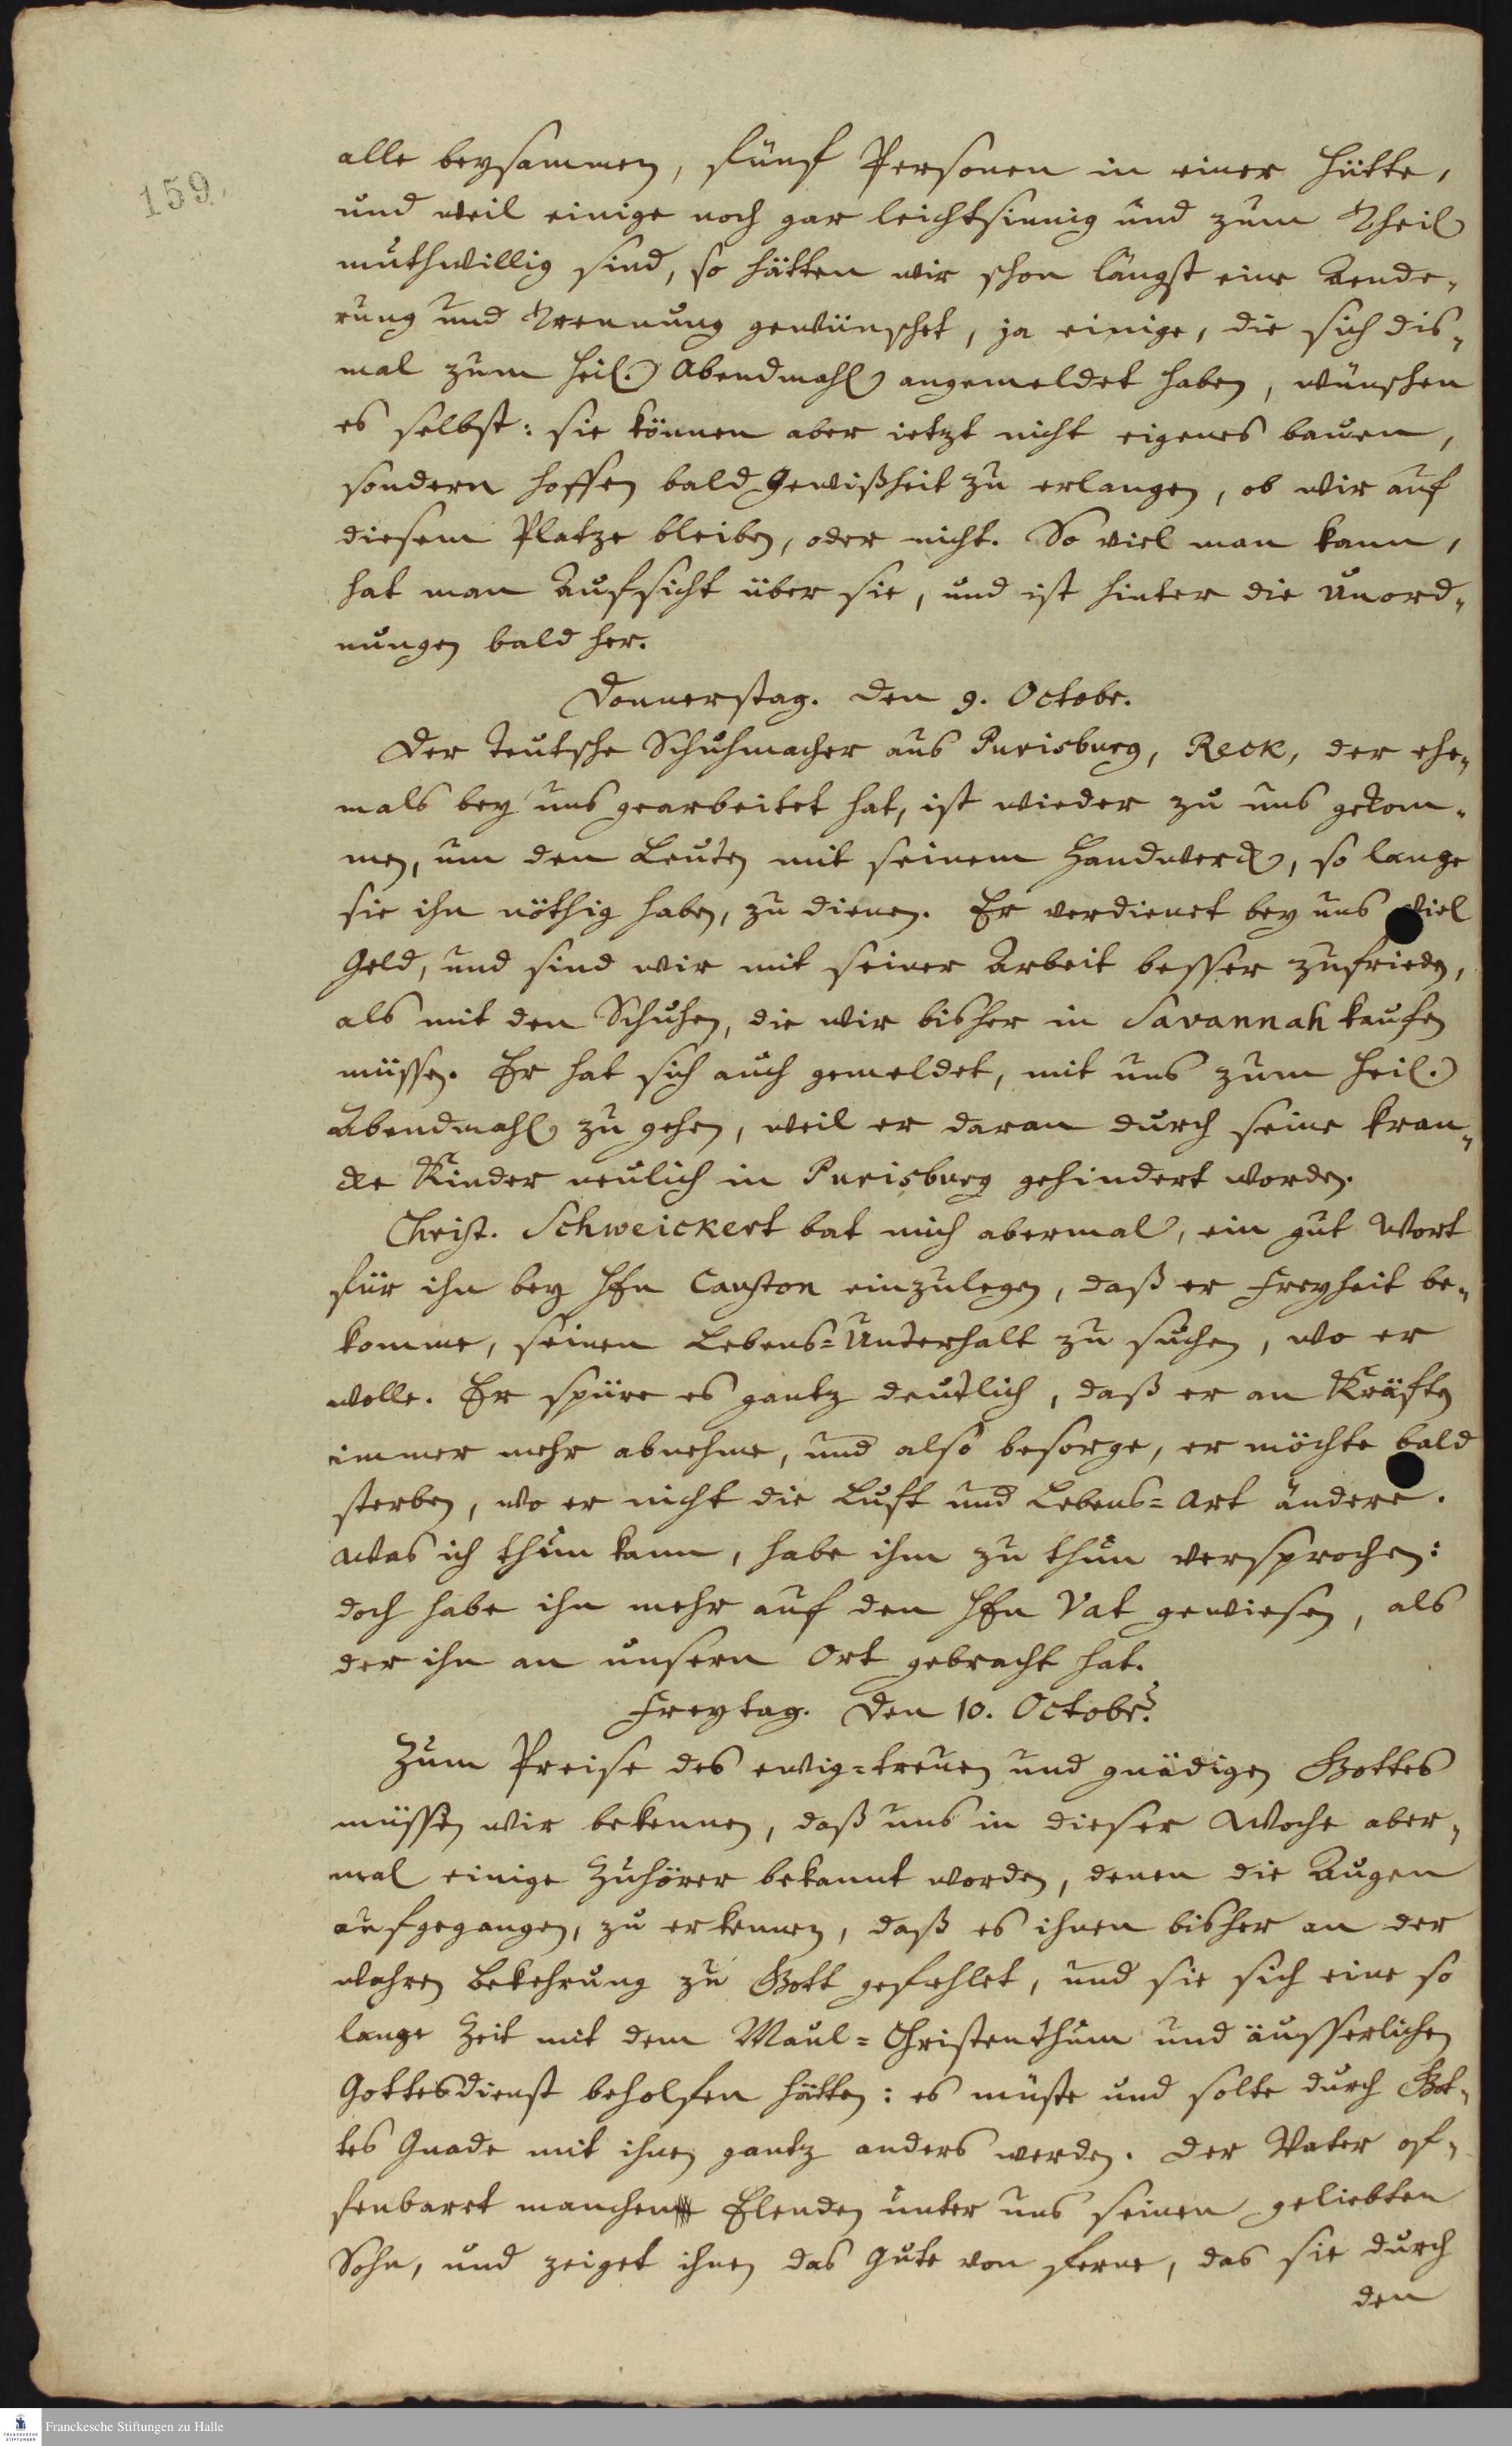 159.
alle beysammen, fünf Personen in einer Hütte,
und weil einige noch gar leichtsinnig und zum Theil
muthwillig sind, so hätten wir schon längst eine Aende-
rung und Trennung gewünschet, ja einige, die sich dis-
mal zum heil. Abendmahl angemeldet haben, wünschen
es selbst: sie können aber ietzt nicht eigenes bauen,
sondern hoffen bald Gewißheit zu erlangen, ob wir auf
diesem Platze bleiben, oder nicht. So viel man kann,
hat man Aufsicht über sie, und ist hinter die Unord-
nungen bald her.
Donnerstag. Den 9. Octobr.
Der teutsche Schuhmacher aus Purisburg, Reck, der ehe-
mals bey uns gearbeitet hat, ist wieder zu uns gekom-
men, um den Leuten mit seinem Handwerck, so lange
sie ihn nöthig haben, zu dienen. Er verdienet bey uns viel
Geld, und sind wir mit seiner Arbeit besser zufrieden,
als mit den Schuhen, die wir bisher in Savannah kaufen
müssen. Er hat sich auch gemeldet, mit uns zum heil.
Abendmahl zu gehen, weil er daran durch seine kran-
cke Kinder neulich in Purisburg gehindert worden.
Christ. Schweickert bat mich abermal, ein gut Wort
für ihn bey Hrn Causton einzulegen, daß er Freyheit be-
komme, seinen Lebens-Unterhalt zu suchen, wo er
wolle. Er spüre es gantz deutlich, daß er an Kräften
immer mehr abnehme, und also besorge, er möchte bald
sterben, wo er nicht die Luft und Lebens-Art ändere.
Was ich thun kann, habe ihm zu thun versprochen:
doch habe ihn mehr auf den Hrn Vat gewiesen, als
der ihn an unsern Ort gebracht hat.
Freytag. Den 10. Octobr.
Zum Preise des ewig-treuen und gnädigen Gottes
müssen wir bekennen, daß uns in dieser Woche aber-
mal einige Zuhörer bekannt worden, denen die Augen
aufgegangen, zu erkennen, daß es ihnen bisher an der
wahren Bekehrung zu Gott gefehlet, und sie sich eine so
lange Zeit mit dem Maul-Christenthum und äusserlichen
Gottesdienst beholfen hätten: es müste und solte durch Got-
tes Gnade mit ihnen gantz anders werden. Der Vater of-
fenbaret manchen Elenden unter uns seinen geliebten
Sohn, und zeiget ihnen das Gute von ferne, das sie durch
den
FRANCKESCHE STIFTUNGEN
Franckesche Stiftungen zu Halle